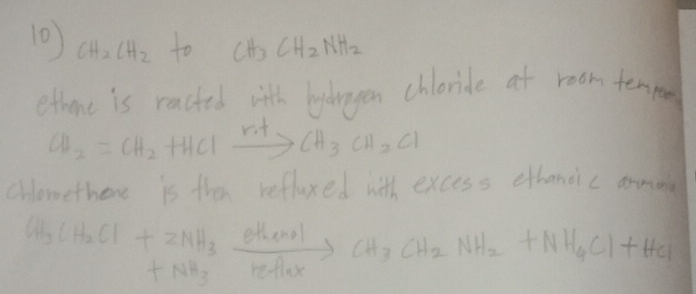 10) CH2CH2 to CH3 CH2NH2
ethene is reacted with hydrogen chloride at room
CH2 = CH2 +HCl r.t → CH3 CH2 Cl
is then refluxed with excess ethanoic
CH3CH2Cl + 2NH3 ethanol → CH3 CH2 NH2 + NH4Cl + HCl
+ NH3 reflux